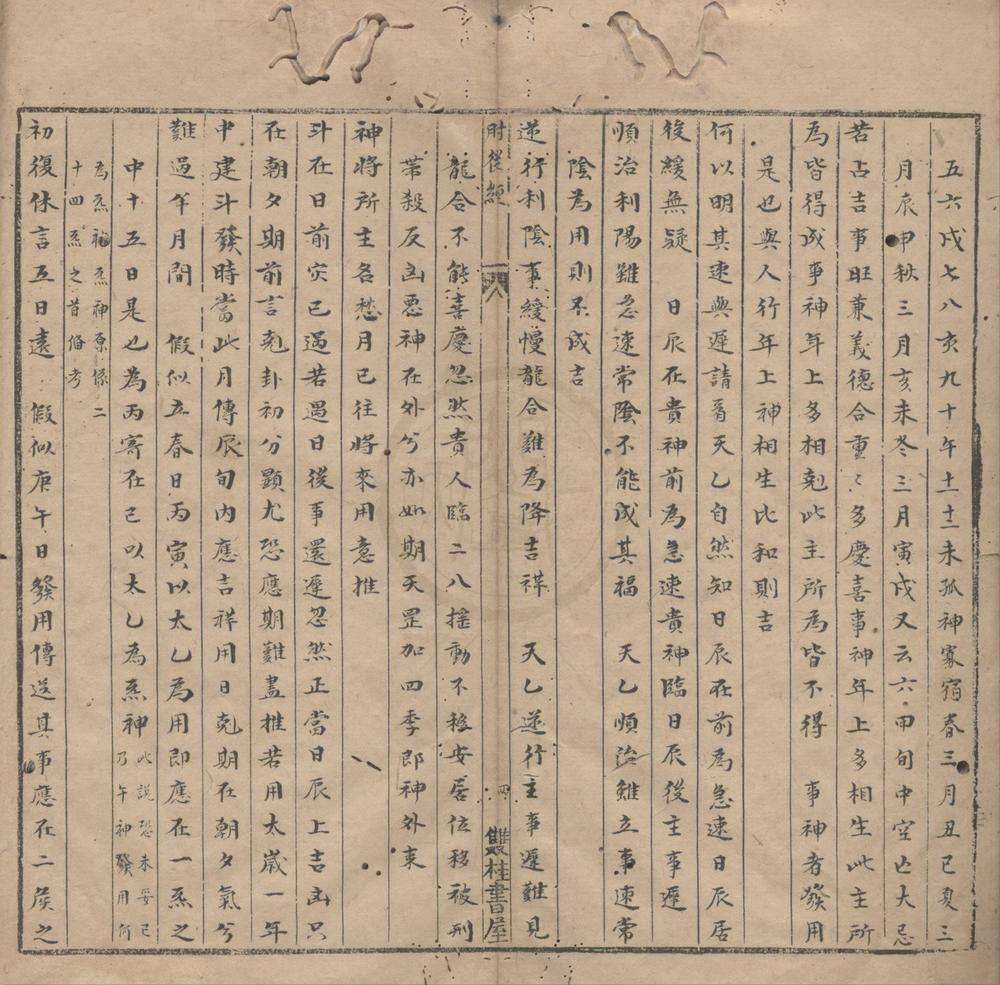 五六戌七八亥九十午十一十二未孤神寡宿春三月丑巳夏三
月辰申秋三月亥未冬三月寅戌又云六甲旬中空亡大忌
若占吉事旺兼義德合重〻多慶喜事神年上多相生此主所
為皆得成事神年上多相剋此主所為皆不得　事神者發用
是也與人行年上神相生比和則吉
何以明其速與遲請看天乙自然知日辰在前為急速日辰居
後緩無疑　日辰在貴神前為急速貴神臨日辰後主事遲
順治利陽雖急速常陰不能成其福　天乙順治雖立事速常
陰為用則不成吉
逆行利陰事緩慢龍合難為降吉祥　天乙逆行主事遲難見
肘後經　雙桂書屋
龍合不能喜慶忽然貴人臨二八搖動不移安居位移被刑
帶殺反凶惡神在外兮亦如期天罡加四季即神外來
神將所主各愁月已往將來用意推
斗在日前灾已過若遇日後事還遲忽然正當日辰上吉凶只
在朝夕期前言剋卦初分顯尤恐應期難盡推若用太歲一年
中建斗發時當此月傳辰旬内應吉祥用日剋期在朝夕氣兮
難過半月間　假似立春日丙寅以太乙為用即應在一炁之
中十五日是也為丙寄在己以太乙為炁神此説恐未妥已
乃午神發用何
為炁神炁神原係二
十四炁之首俻考
初復休言五日遠　假似庚午日發用傳送其事應在二矦之